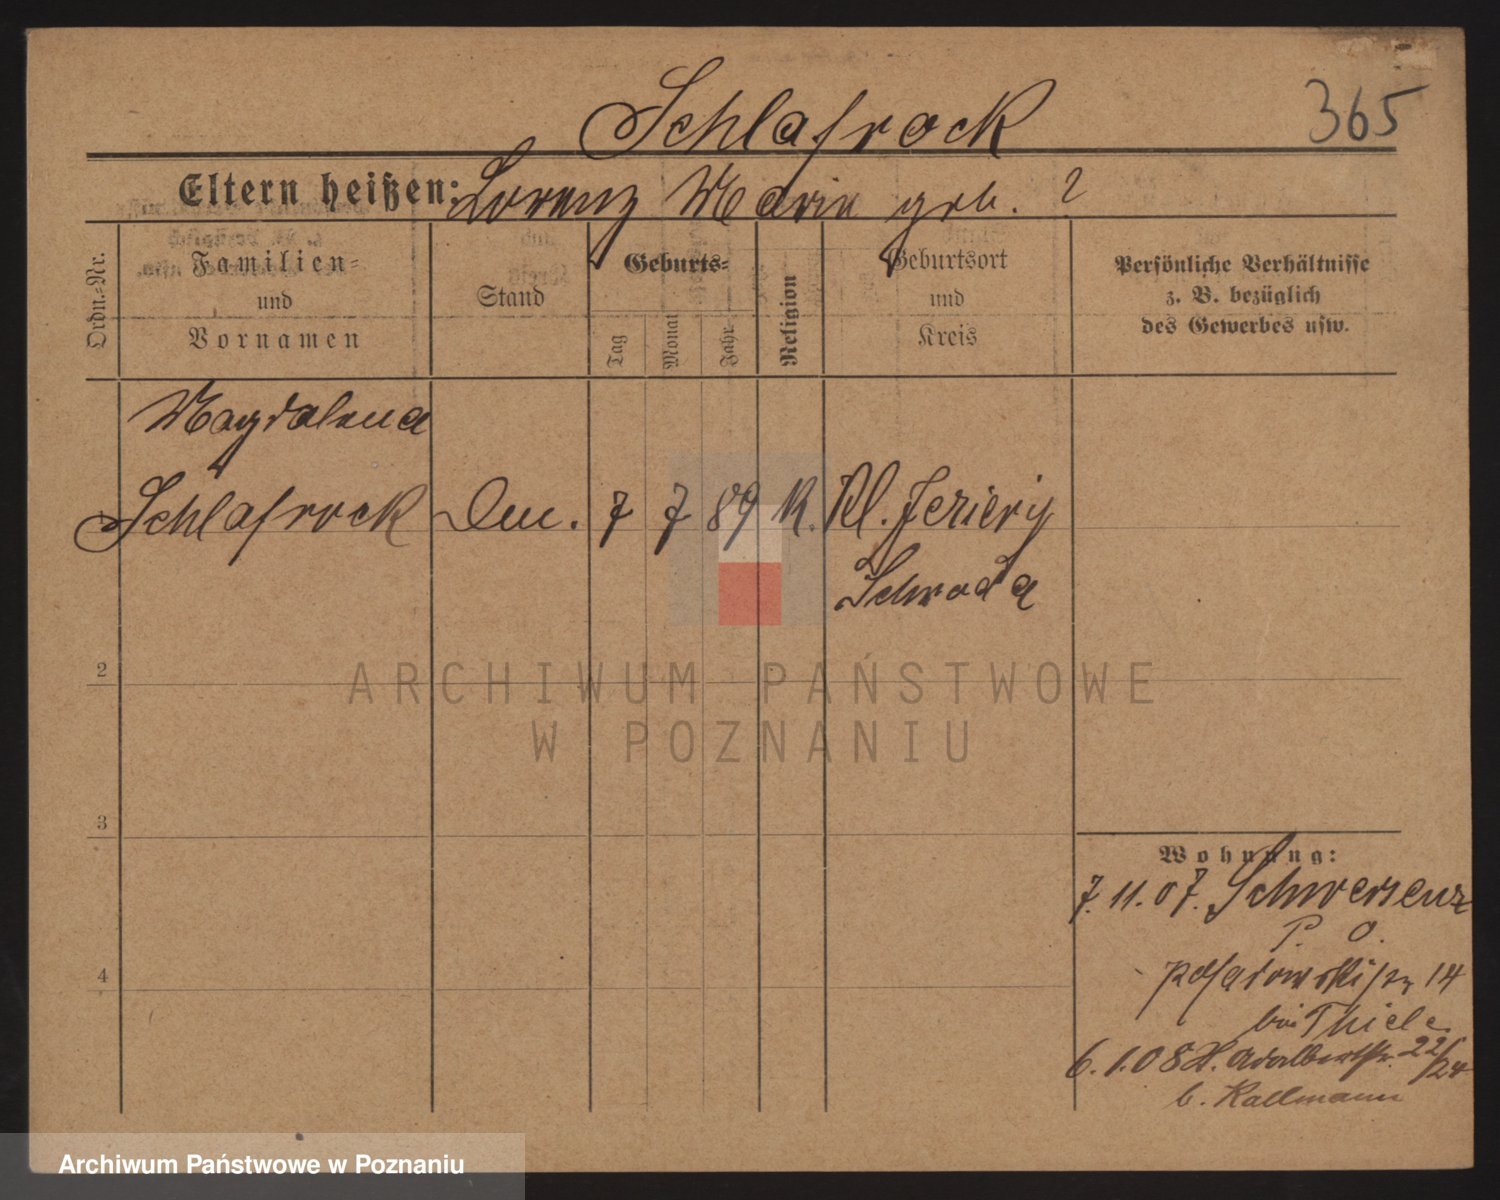 365
Schlafrock
Eltern heißen: Lorenz Marie geb. ?
Ordn.-Nr.
Familien-
und
Vornamen
Stand
Geburts-
Tag
Monat
Jahr
Religion
Geburtsort
und
Kreis
Persönliche Verhältnisse
z. B. bezüglich
des Gewerbes usw.
Magdalena
Schlafrock
7 7 89 K. Kl. Jeziery
Schroda
2
3
4
ARCHIWUM PAŃSTWOWE
W POZNANIU
Wohnung:
7. 11. 07. Schwersenz
P. O.
14
bei Thiele
6. 1. 08 St. Adalbertstr. 22/24
b. Kallmann
Archiwum Państwowe w Poznaniu